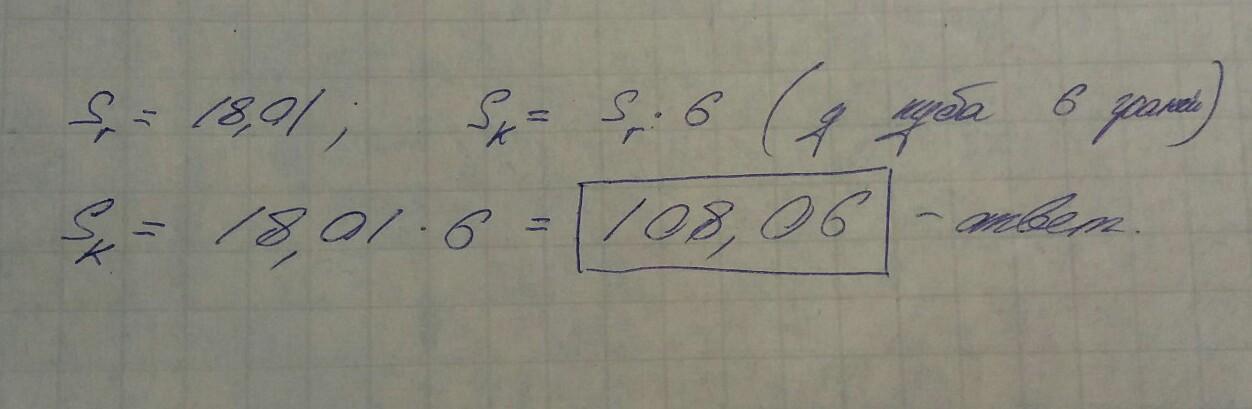 Sг = 18,01; Sк = Sг · 6 (у куба 6 граней)
Sк = 18,01 · 6 = 108,06 - ответ.